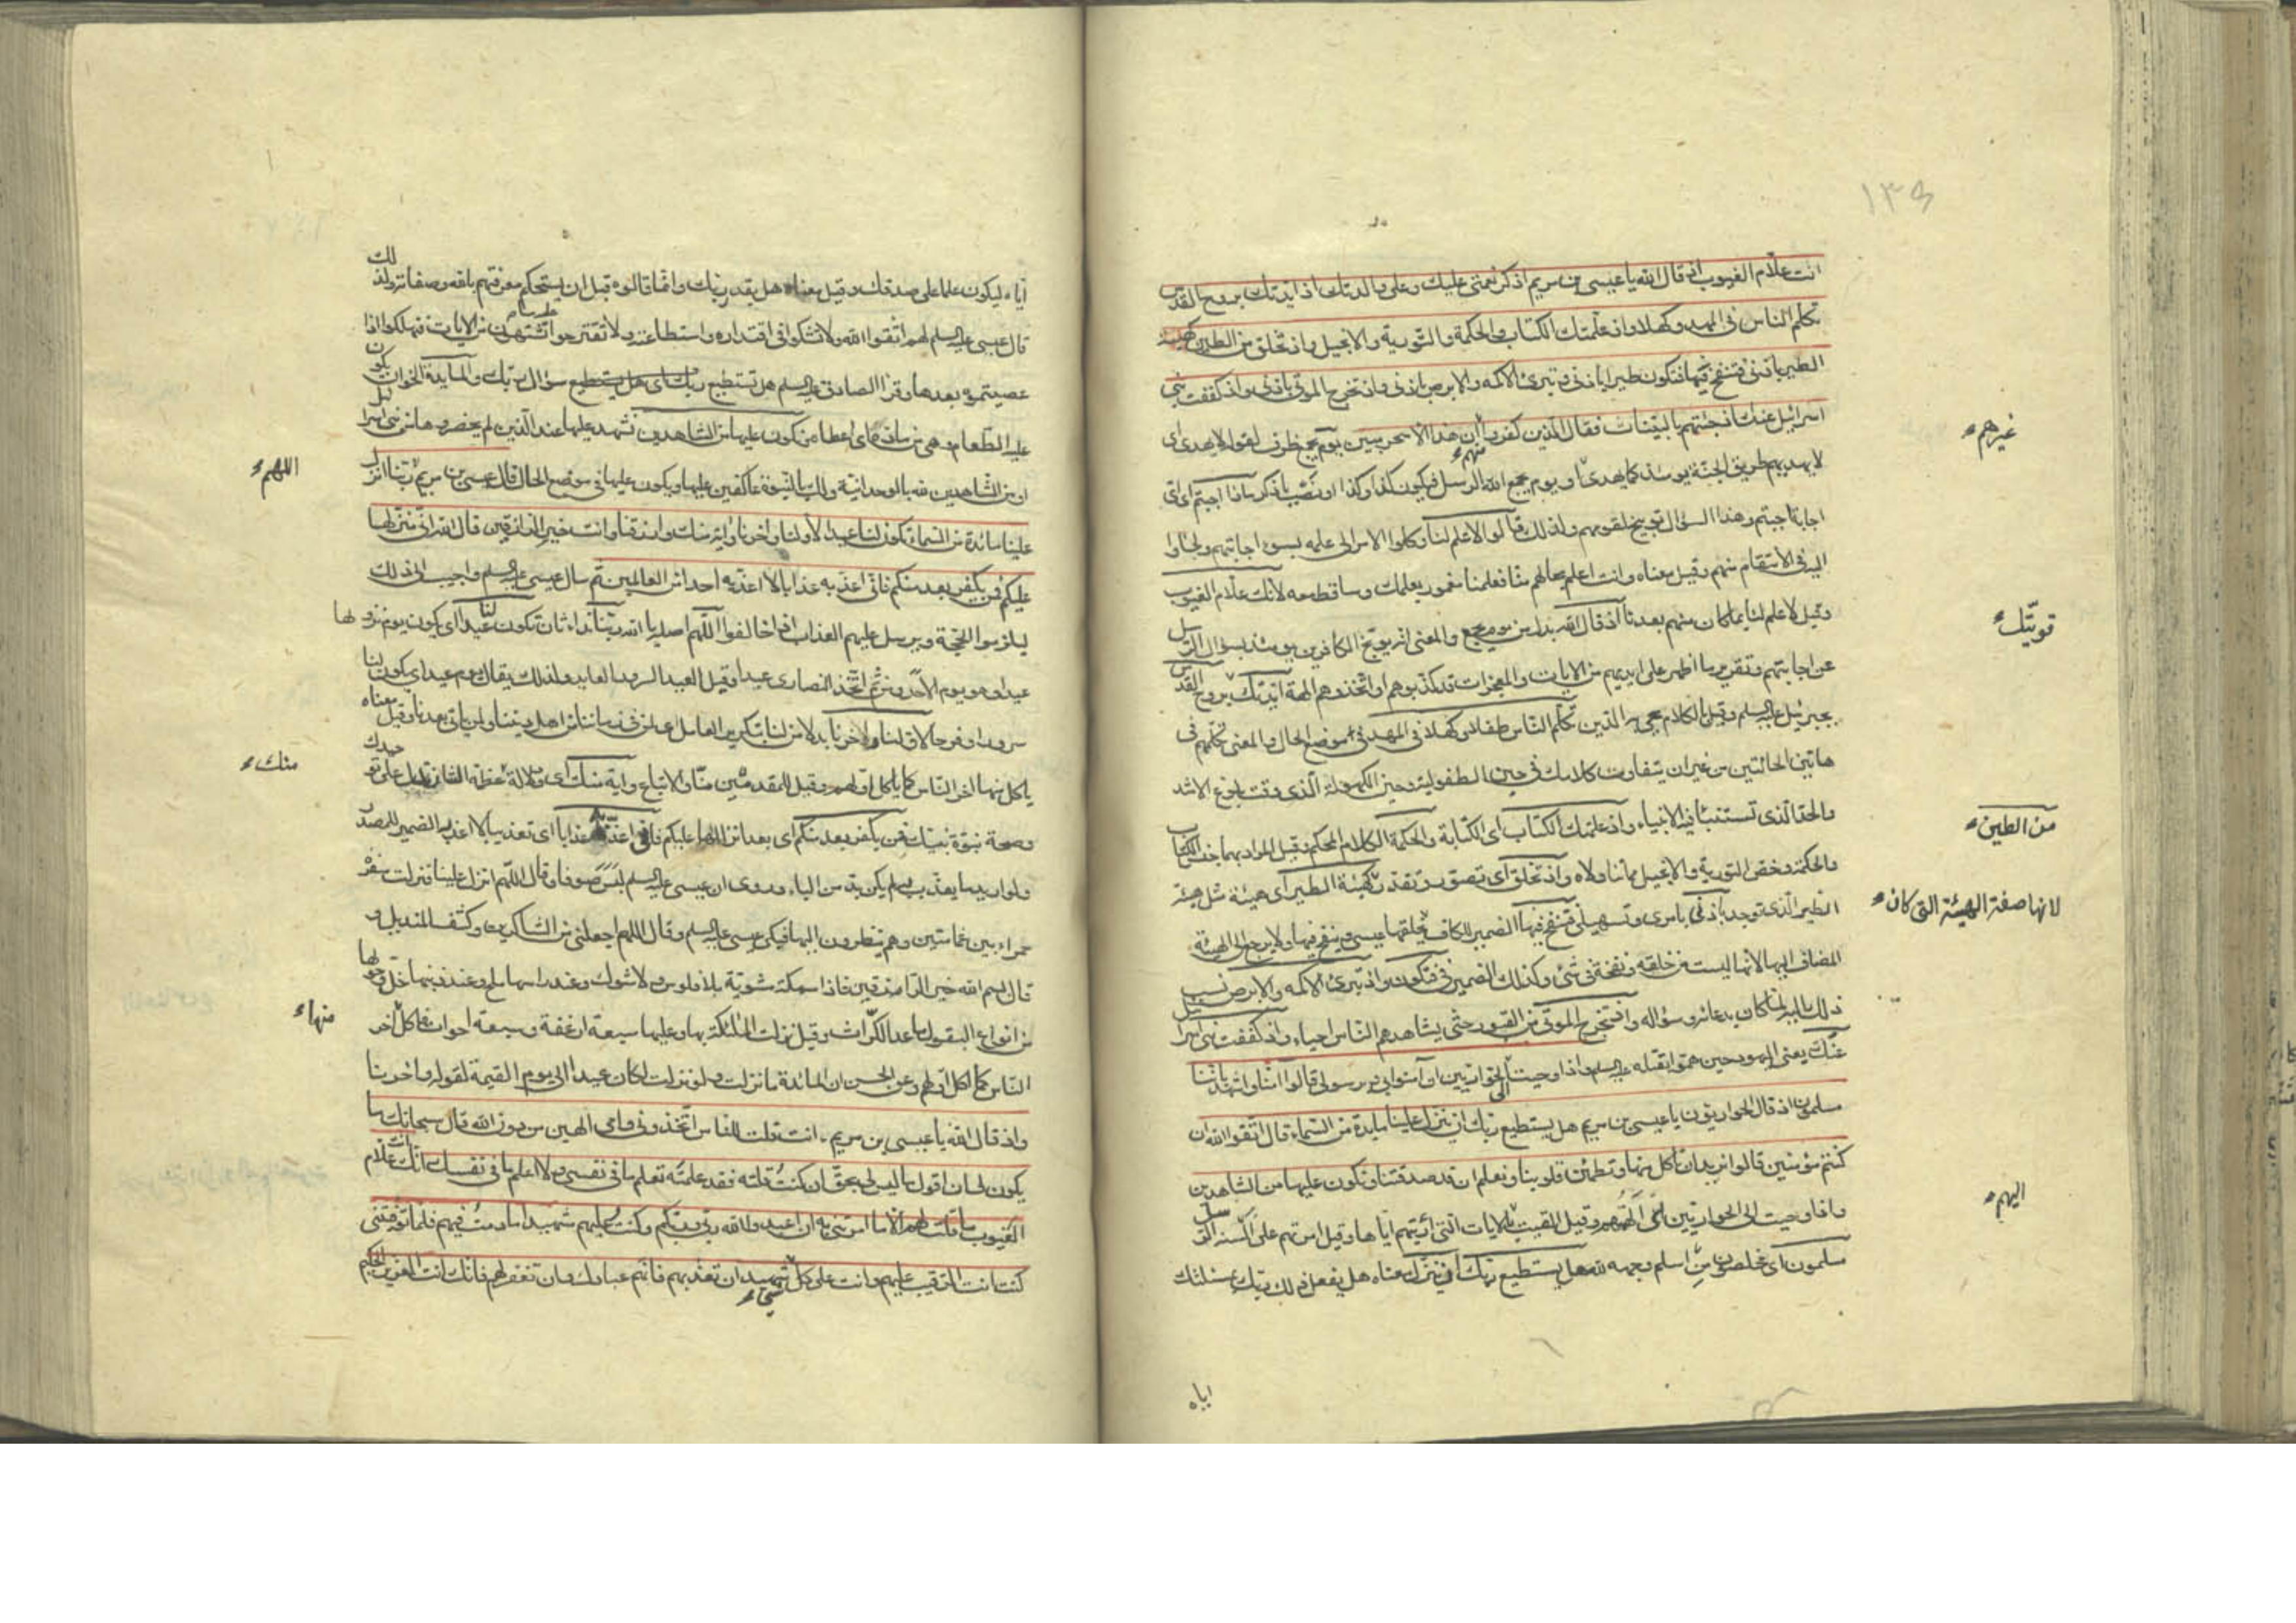 ١٣٥
انت علّام الغيوب اذ قال الله يا عيسى بن مريم اذكر نعمتي عليك وعلى والدتك اذ ايدتك بروح القدس
تكلم الناس في المهد وكهلا واذ علمتك الكتاب والحكمة والتورية والانجيل واذ تخلق من الطين كهيئة
الطير باذني فتنفخ فيها فتكون طيرا باذني وتبرئ الاكمه والابرص باذني واذ تخرج الموتى باذني واذ كففت بني
اسرائيل عنك اذ جئتهم بالبينات فقال الذين كفروا ان هذا الا سحر مبين يوم يجمع ظرف لقوله لا يهدى اى
غيرهم
لا يهديهم طريق الجنة يومئذ كما يهدى او يوم يجمع الله الرسل فيكون كذا وكذا او نصب باذكر ماذا اجبتم اى اى
منهم
اجابة اجبتم وهذا السؤال توبيخ لقومهم ولذلك قالوا لا علم لنا وكلوا الامر الى علمه بسوء اجابتهم ولجاوا
اليه في الانتقام منهم وقيل معناه وانت اعلم بحالهم منا فعلمنا مغمور بعلمك وساقط معه لانك علام الغيوب
وقيل لا علم لنا بما كان منهم بعدنا اذ قال الله بدل من يوم يجمع والمعنى انه يوبخ الكافرين يومئذ بسؤال الرسل
قويّتك
عن اجابتهم وتقرير ما اظهر على ايديهم من الايات والمعجزات فكذبوهم او اتخذوهم الهة ايدتك بروح القدس
بجبرئيل عليه السلم وقيل بالكلام يحيى به الدين تكلم الناس طفلا وكهلا في المهد في موضع الحال والمعنى تكلمهم في
هاتين الحالتين من غير ان يتفاوت كلامك في حين الطفولية وحين الكهولة الذى وقت بلوغ الاشد
والحد الذى تستنبئ فيه الانبياء واذ علمتك الكتاب اى الكتابة والحكمة الكلام المحكم وقيل المراد بهما جنس الكتاب
من الطين
والحكمة وخص التورية والانجيل مما تناولاه واذ تخلق اى تصور وتقدر كهيئة الطير اى هيئة مثل هيئة
الطير الذى توجد باذني بامرى وتسهيلى فتنفخ فيها الضمير للكاف يخلقها عيسى وينفخ فيها ولا يرجع الى الهيئة
لانها صفة الهيئة التي كان
المضاف اليها لانها ليست من خلقه ونفخه في شئ وكذلك الضمير في فتكون واذ تبرئ الاكمه والابرص نسب
ذلك اليه لما كان بدعائه وسؤاله واذ تخرج الموتى من القبور حتى يشاهدهم الناس احياء واذ كففت بني اسرائيل
عنك يعني اليهود حين هموا بقتله عليه السلم واذ اوحيت الى الحواريين ان آمنوا بي وبرسولى قالوا آمنا واشهد باننا
مسلمون اذ قال الحواريون يا عيسى بن مريم هل يستطيع ربك ان ينزل علينا مايدة من السماء قال اتقوا الله ان
كنتم مؤمنين قالوا نريد ان ناكل منها وتطمئن قلوبنا ونعلم ان قد صدقتنا ونكون عليها من الشاهدين
واذ اوحيت الى الحواريين اى الهمتهم وقيل القيت بالايات التي اريتهم اياها وقيل امرتهم على السنة الرسل
اليهم
مسلمون اى مخلصون من اسلم وجهه لله هل يستطيع ربك ان ينزل معناه هل يفعل ذلك ربك بمسئلتك
اياه
اياه ليكون علما على صدقك وقيل معناه هل يقدر ربك وانما قالوه قبل ان يستحكم معرفتهم بالله وصفاته ولذلك
قال عيسى عليه السلم لهم اتقوا الله ولا تشكوا في اقتداره واستطاعته ولا تقترحوا ما تشتهون من الايات فتهلكوا اذا
عصيتموه بعدها وقرا الصادق عليه السلم هل تستطيع ربك اى هل يستطيع سؤال ربك والمايدة الخوان يكون
عليه الطعام وهي من ماده اى اعطاه نكون عليها من الشاهدين نشهد عليها عند الذين لم يحضروها من بني اسرائيل
او من الشاهدين لله بالوحدانية ولك بالنبوة عاكفين عليها ويكون عليها في موضع الحال قال عيسى بن مريم ربنا انزل
اللهم
علينا مائدة من السماء تكون لنا عيدا لاولنا واخرنا واية منك وارزقنا وانت خير الرازقين قال الله اني منزلها
عليكم فمن يكفر بعد منكم فاني اعذبه عذابا لا اعذبه احدا من العالمين ثم سال عيسى عليه السلم واجيب الى ذلك
ليلزموا الحجة ويرسل عليهم العذاب اذا خالفوا اللهم اصله يا الله ربنا نداء ثان تكون لنا عيدا اى يكون يوم نزولها
عيدا وهو يوم الاحد ومن ثم اتخذ النصارى عيدا وقيل العيد السرور العايد ولذلك يقال يوم عيد اى يكون لنا
سرورا وفرحا لاولنا واخرنا بدل من لنا بتكرير العامل اى لمن في زماننا من اهل ديننا ولمن ياتى بعدنا وقيل معناه
ياكل منها اخر الناس كما ياكل اولهم وقيل للمقدمين منا والاتباع واية منك اى دلالة عظيمة الشان تدل على توحيدك
منك
وصحة نبوة نبيك فمن يكفر بعد منكم اى بعد انزالها عليكم فاني اعذبه عذابا اى تعذيبا لا اعذبه الضمير للمصدر
ولو اريد ما يعذب به لم يكن بد من الباء وروى ان عيسى عليه السلم لبس صوفا وقال اللهم انزل علينا فنزلت سفرة
حمراء بين غمامتين وهم ينظرون اليها فبكى عيسى عليه السلم وقال اللهم اجعلنى من الشاكرين وكشف المنديل و
قال بسم الله خير الرازقين فاذا سمكة مشوية بلا فلوس ولا شوك وعند راسها ملح وعند ذنبها خل وحولها
من انواع البقول ما عدا الكراث وقيل نزلت الملئكة بها وعليها سبعة ارغفة وسبعة احوات فاكل اخر
منها
الناس كما اكل اولهم وعن الحسن ان المائدة ما نزلت ولو نزلت لكان عيدا الى يوم القيمة لقوله واخرنا
واذ قال الله يا عيسى بن مريم ءانت قلت للناس اتخذونى وامى الهين من دون الله قال سبحانك ما
يكون لى ان اقول ما ليس لى بحق ان كنت قلته فقد علمته تعلم ما في نفسى ولا اعلم ما في نفسك انك انت علام
الغيوب ما قلت لهم الا ما امرتنى به ان اعبدوا الله ربى وربكم وكنت عليهم شهيدا ما دمت فيهم فلما توفيتنى
كنت انت الرقيب عليهم وانت على كل شىء شهيد ان تعذبهم فانهم عبادك وان تغفر لهم فانك انت العزيز الحكيم